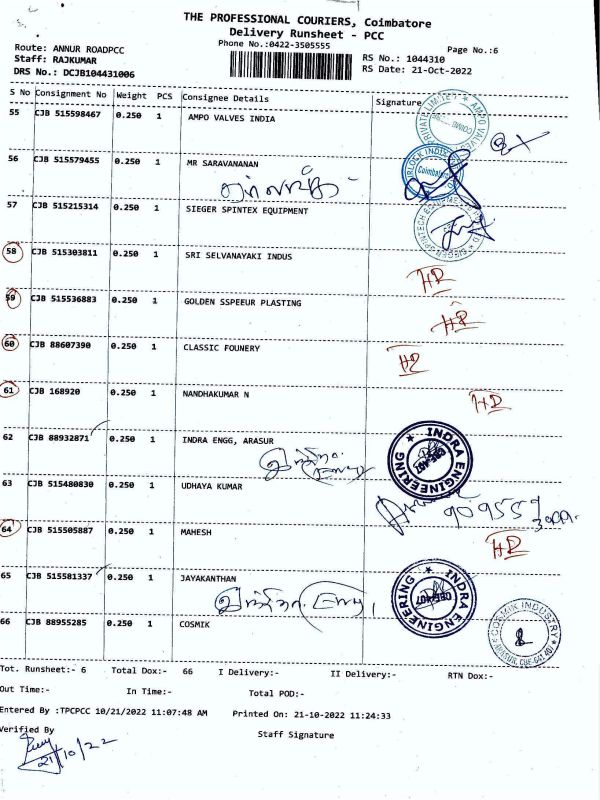 THE PROFESSIONAL COURIERS, Coimbatore
Delivery Runsheet - PCC
Phone No.:0422-3505555
Page No.:6
Route: ANNUR ROADPCC
Staff: RAJKUMAR
DRS No.: DCJB104431006
RS No.: 1044310
RS Date: 21-Oct-2022
S No Consignment No Weight PCS Consignee Details Signature
55 CJB 515598467 0.250 1 AMPO VALVES INDIA
56 CJB 515579455 0.250 1 MR SARAVANANAN
57 CJB 515215314 0.250 1 SIEGER SPINTEX EQUIPMENT
58 CJB 515303811 0.250 1 SRI SELVANAYAKI INDUS HD
59 CJB 515536883 0.250 1 GOLDEN SSPEEUR PLASTING HD
60 CJB 88607390 0.250 1 CLASSIC FOUNERY HD
61 CJB 168920 0.250 1 NANDHAKUMAR N HD
62 CJB 88932871 0.250 1 INDRA ENGG, ARASUR INDRA ENGINEERING
63 CJB 515480830 0.250 1 UDHAYA KUMAR
64 CJB 515505887 0.250 1 MAHESH HD
65 CJB 515581337 0.250 1 JAYAKANTHAN INDRA ENGINEERING
66 CJB 88955285 0.250 1 COSMIK COSMIK INDUSTRY
Tot. Runsheet:- 6 Total Dox:- 66 I Delivery:- II Delivery:- RTN Dox:-
Out Time:- In Time:- Total POD:-
Entered By :TPCPCC 10/21/2022 11:07:48 AM Printed On: 21-10-2022 11:24:33
Verified By Staff Signature
21/10/22